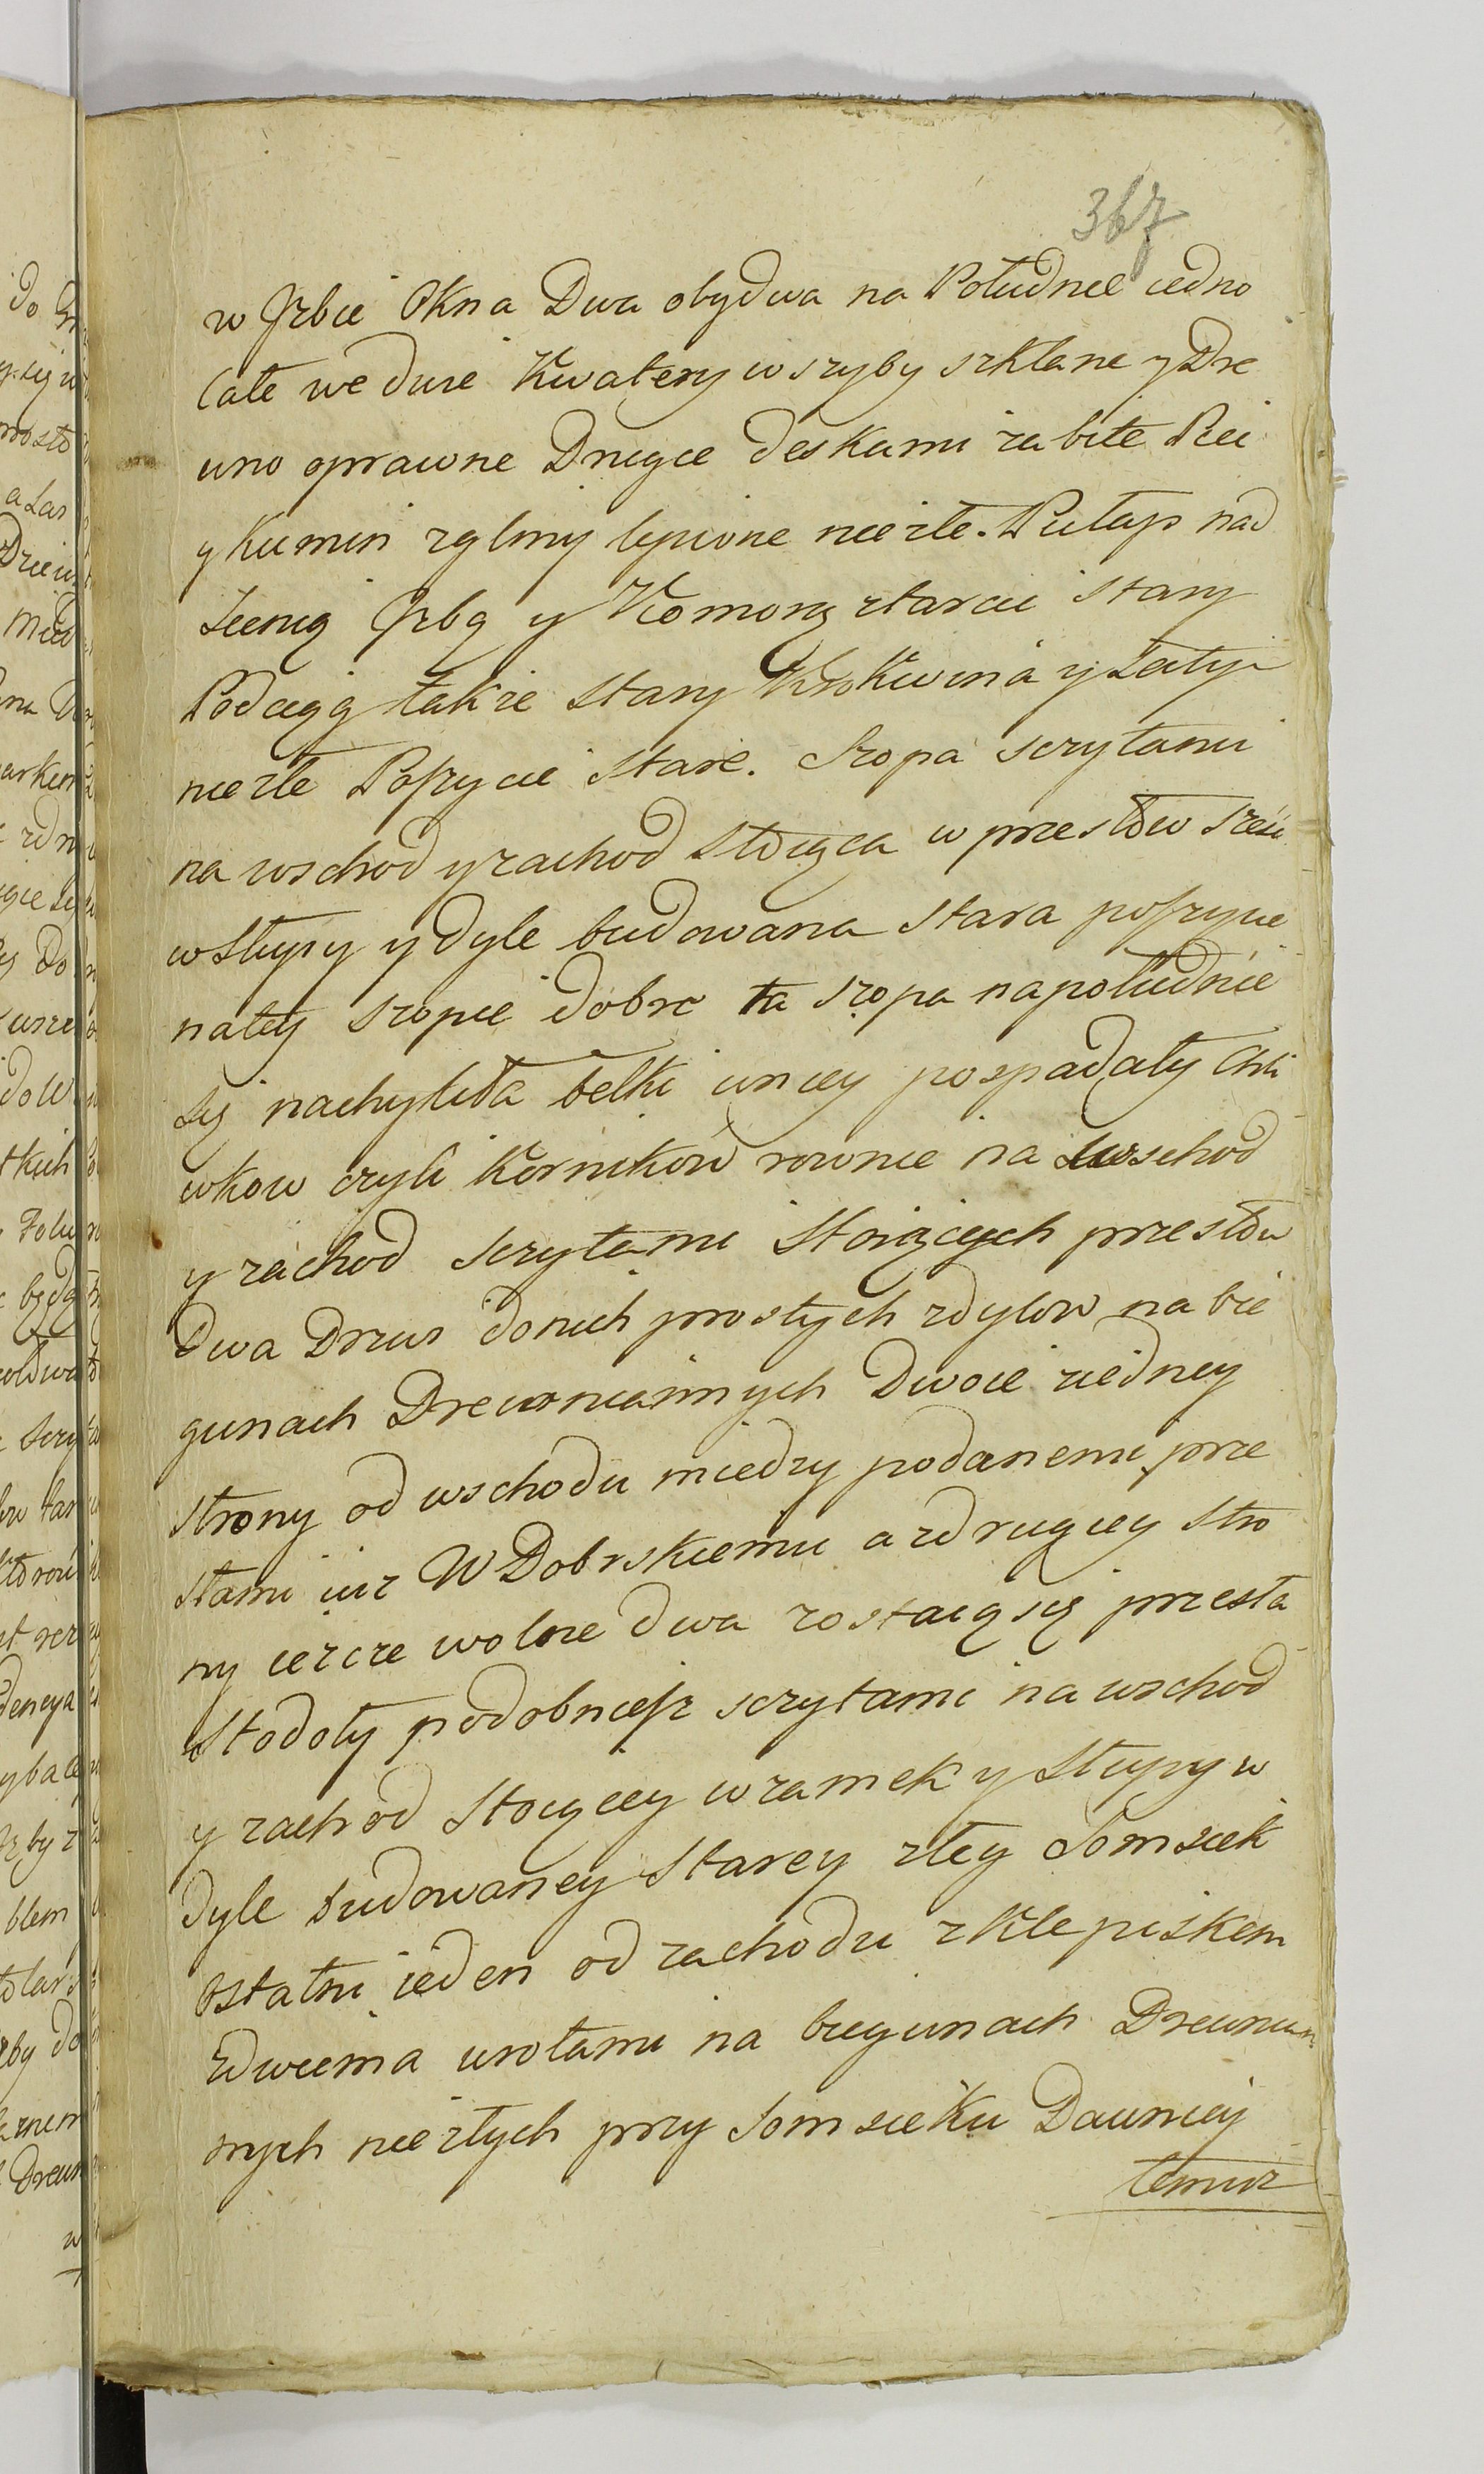 367
w Jzbie Okna Dwa obydwa na Południe iedno
całe we dwie Kwatery w szyby szklane y Dre
wno oprawne Drugie deskami zabite Piec
y Kumin z gliny lepione nie złe. Pułap nad
Sienią Jzbą y Komorą z tarcic Stary
Podciąg także Stary Krokwina y Łaty
nie złe Poszycie Stare. Szopa sczytami
na wschod y zachod Stoiąca w przesłow sześć
w Słupy y dyle budowana Stara poszycie
na tey szopie dobre ta szopa na południe
się nachyliła belki w niey pospadały Chli
wkow czyli Kornikow rownie na wschod
y zachod sczytami Stoiących przesłow
Dwa Drzwi do nich prostych z dylow na bie
gunach Drewniannych Dwoie z iedney
Strony od wschodu miedzy podanemi prze
słami iuż W Dobrskiemu a z drugiey Stro
ny ieżcze wolne dwa zostaią się przesła
Stodoły podobnież sczytami na wschod
y zachod Stoiącey w zamek y Słupy w
dyle budowaney Starey złey Somsiek
ostatni ieden od zachodu z klepiskem
z dwiema wrotami na biegunach Drewnian
nych nie złych przy Somsieku Dawniey
temuż